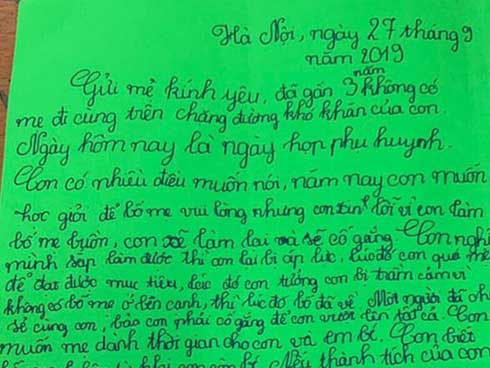 Hà Nội, ngày 27 tháng 9
năm 2019
Gửi mẹ kính yêu, đã gần 3 năm không có
mẹ đi cùng trên chặng đường khó khăn của con.
Ngày hôm nay là ngày họp phụ huynh.
Con có nhiều điều muốn nói, năm nay con muốn
học giỏi để bố mẹ vui lòng nhưng con xin lỗi vì con làm
bố mẹ buồn, con sẽ làm lại và sẽ cố gắng. Con nghĩ
mình sắp làm được thì con lại bị áp lực, lúc đó con quá
để đạt được mục tiêu, lúc đó con tưởng con bị trầm cảm vì
không có bố mẹ ở bên cạnh, thì lúc đó bố đã về. Một người đã
sẽ cùng con, bảo con phải cố gắng để con vượt lên tất cả. Con
muốn mẹ dành thời gian cho con và em bé. Con biết
Nếu thành tích của con